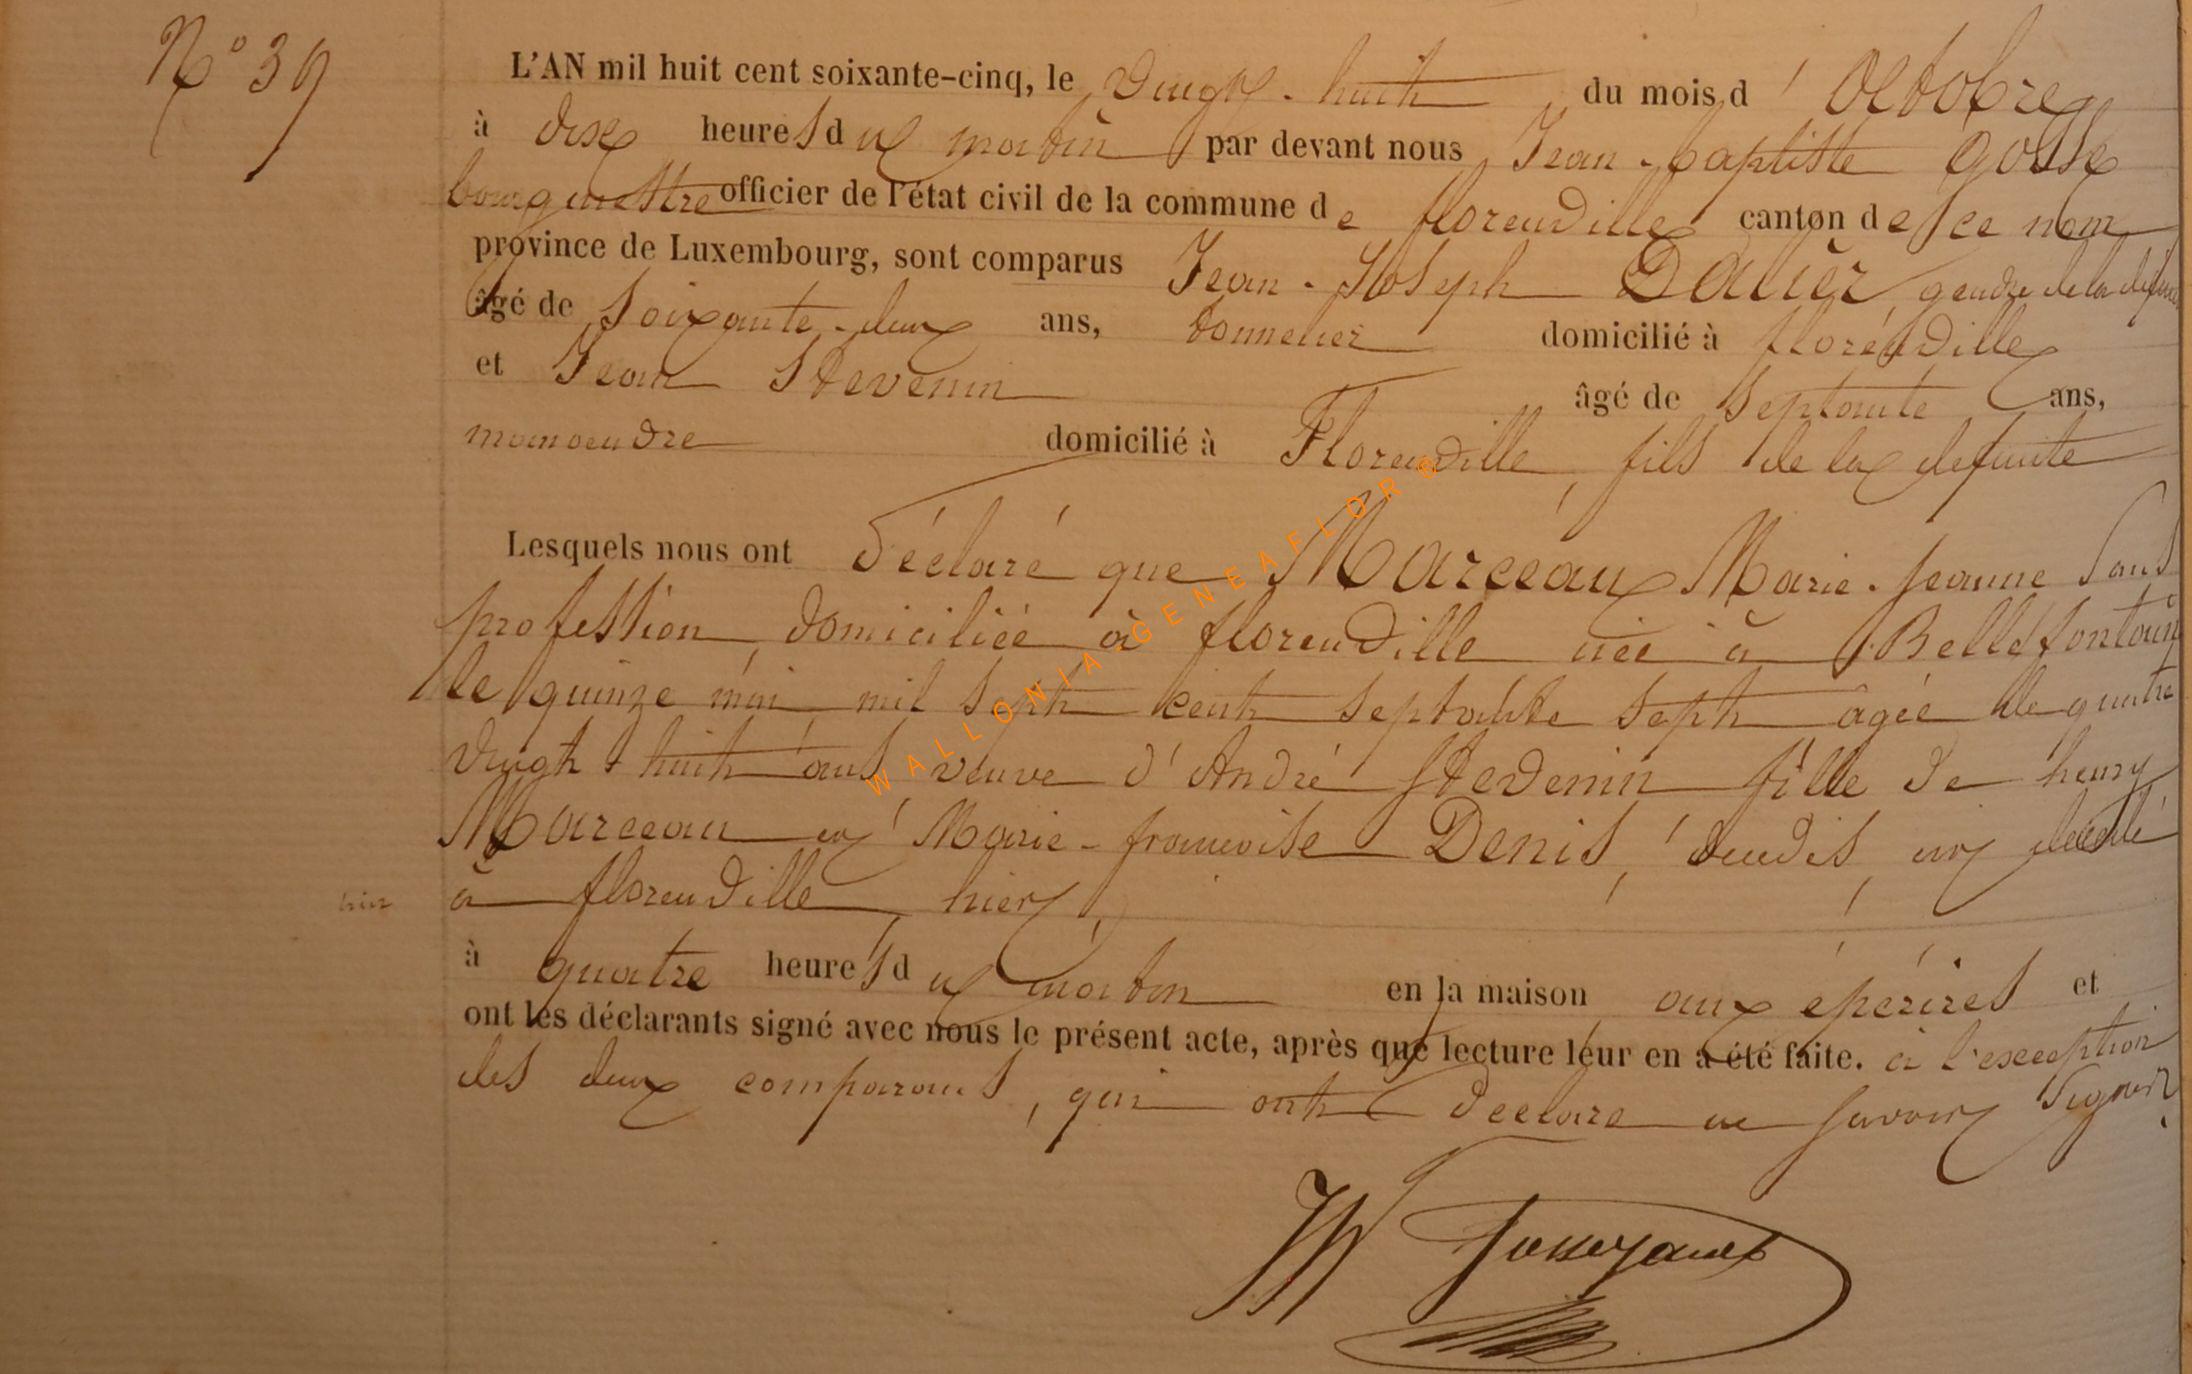 N° 39
L'AN mil huit cent soixante-cinq, le vingt-huit du mois d'Octobre
à dix heures du matin par devant nous Jean-baptiste Gosse
bourgmestre officier de l'état civil de la commune de florenville canton de ce nom
province de Luxembourg, sont comparus Jean-Joseph gendre de la défunte
âgé de Soixante-deux ans, tonnelier domicilié à florenville
et Jean Stevenin âgé de septante ans,
manoeudre domicilié à Florenville, fils de la defunte
Lesquels nous ont déclaré que Marceau Marie-Jeanne Sans
profession, domiciliée à florenville née à Bellefontain
le quinze mai mil sept cent septante sept agée de quatre
vingt huit ans veuve d'André Stevenin fille de henry
Marceau et Marie-francoise Denis, est decedé
à florenville, hier,
hier
à quatre heures du matin en la maison aux et
ont les déclarants signé avec nous le présent acte, après que lecture leur en a été faite. à l'exception
des deux comparants, qui ont declaré ne savoir signer.
WALLONIA-GENEAFLORE